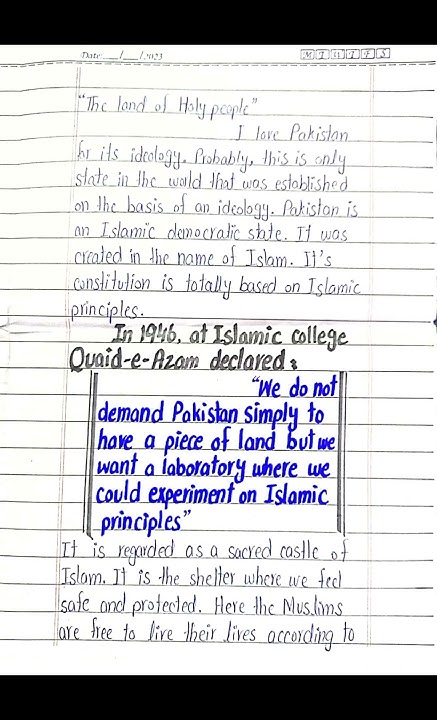 Date:__/__/2023
M T W T F S
"The land of Holy people"
I love Pakistan
for its ideology. Probably, this is only
state in the world that was established
on the basis of an ideology. Pakistan is
an Islamic democratic state. It was
created in the name of Islam. It's
constitution is totally based on Islamic
principles.
In 1946, at Islamic college
Quaid-e-Azam declared:
"We do not
demand Pakistan simply to
have a piece of land but we
want a laboratory where we
could experiment on Islamic
principles"
It is regarded as a sacred castle of
Islam. It is the shelter where we feel
safe and protected. Here the Muslims
are free to live their lives according to